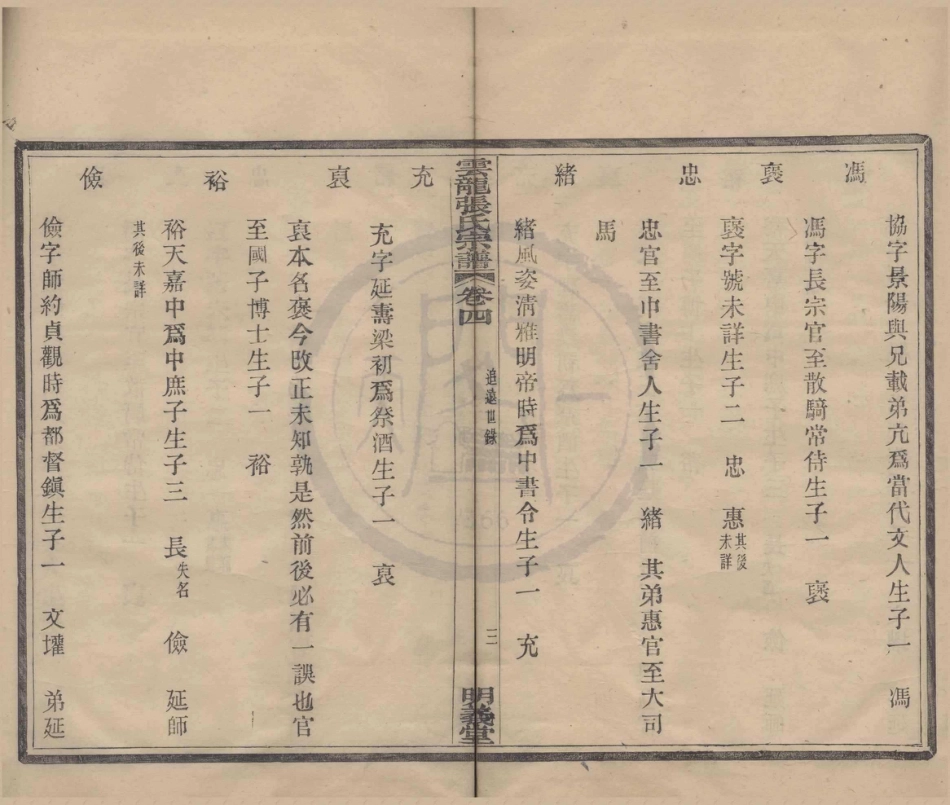 協字景陽與兄載弟亢爲當代文人生子一　馮
馮
馮字長宗官至散騎常侍生子一　襃
襃
襃字號未詳生子二　忠　惠其後未詳
忠
忠官至中書舍人生子一　緒　其弟惠官至大司
馬
緒
緒風姿淸雅明帝時爲中書令生子一　充
雲龍張氏宗譜　卷四　追遠世錄　三　明義堂
充
充字延壽梁初爲祭酒生子一　裒
裒
裒本名褒今改正未知孰是然前後必有一誤也官
至國子博士生子一　裕
裕
裕天嘉中爲中庶子生子三　長失名　儉　延師
其後未詳
儉
儉字師約貞觀時爲都督鎭生子一　文瓘　弟延